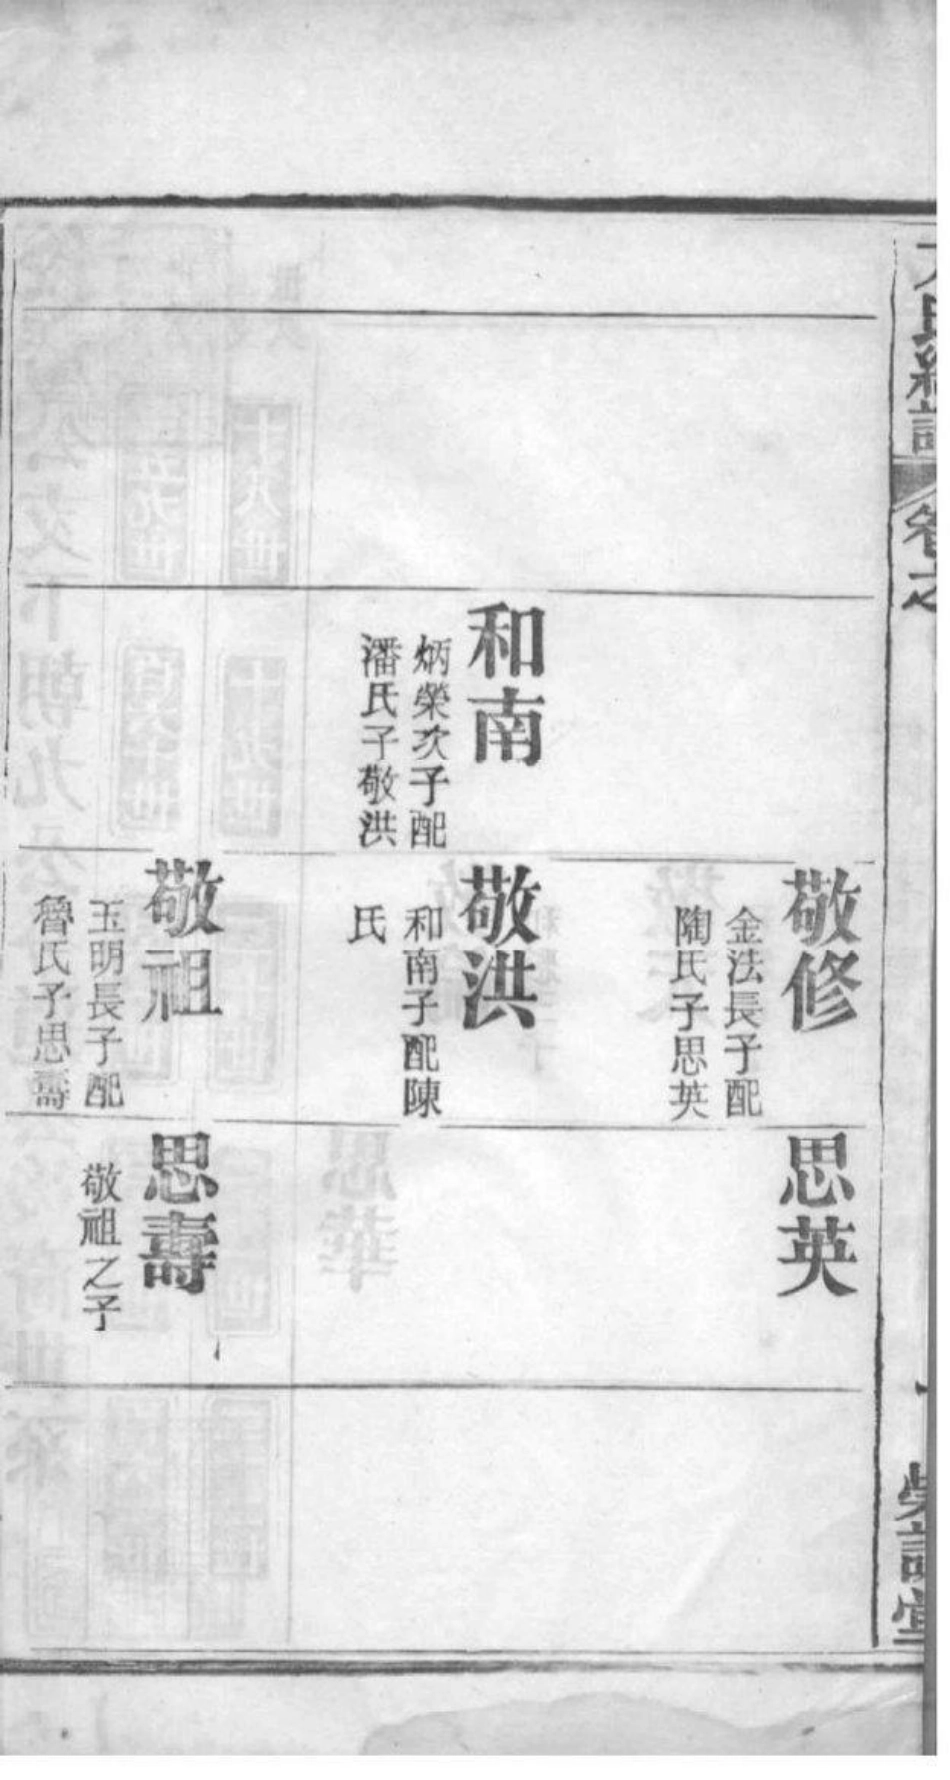 氏
卷之
和南
炳榮次子配
潘氏子敬洪
敬修
金法長子配
陶氏子思英
敬洪
和南子配陳
氏
敬祖
玉明長子配
魯氏子思壽
思英
思壽
敬祖之子